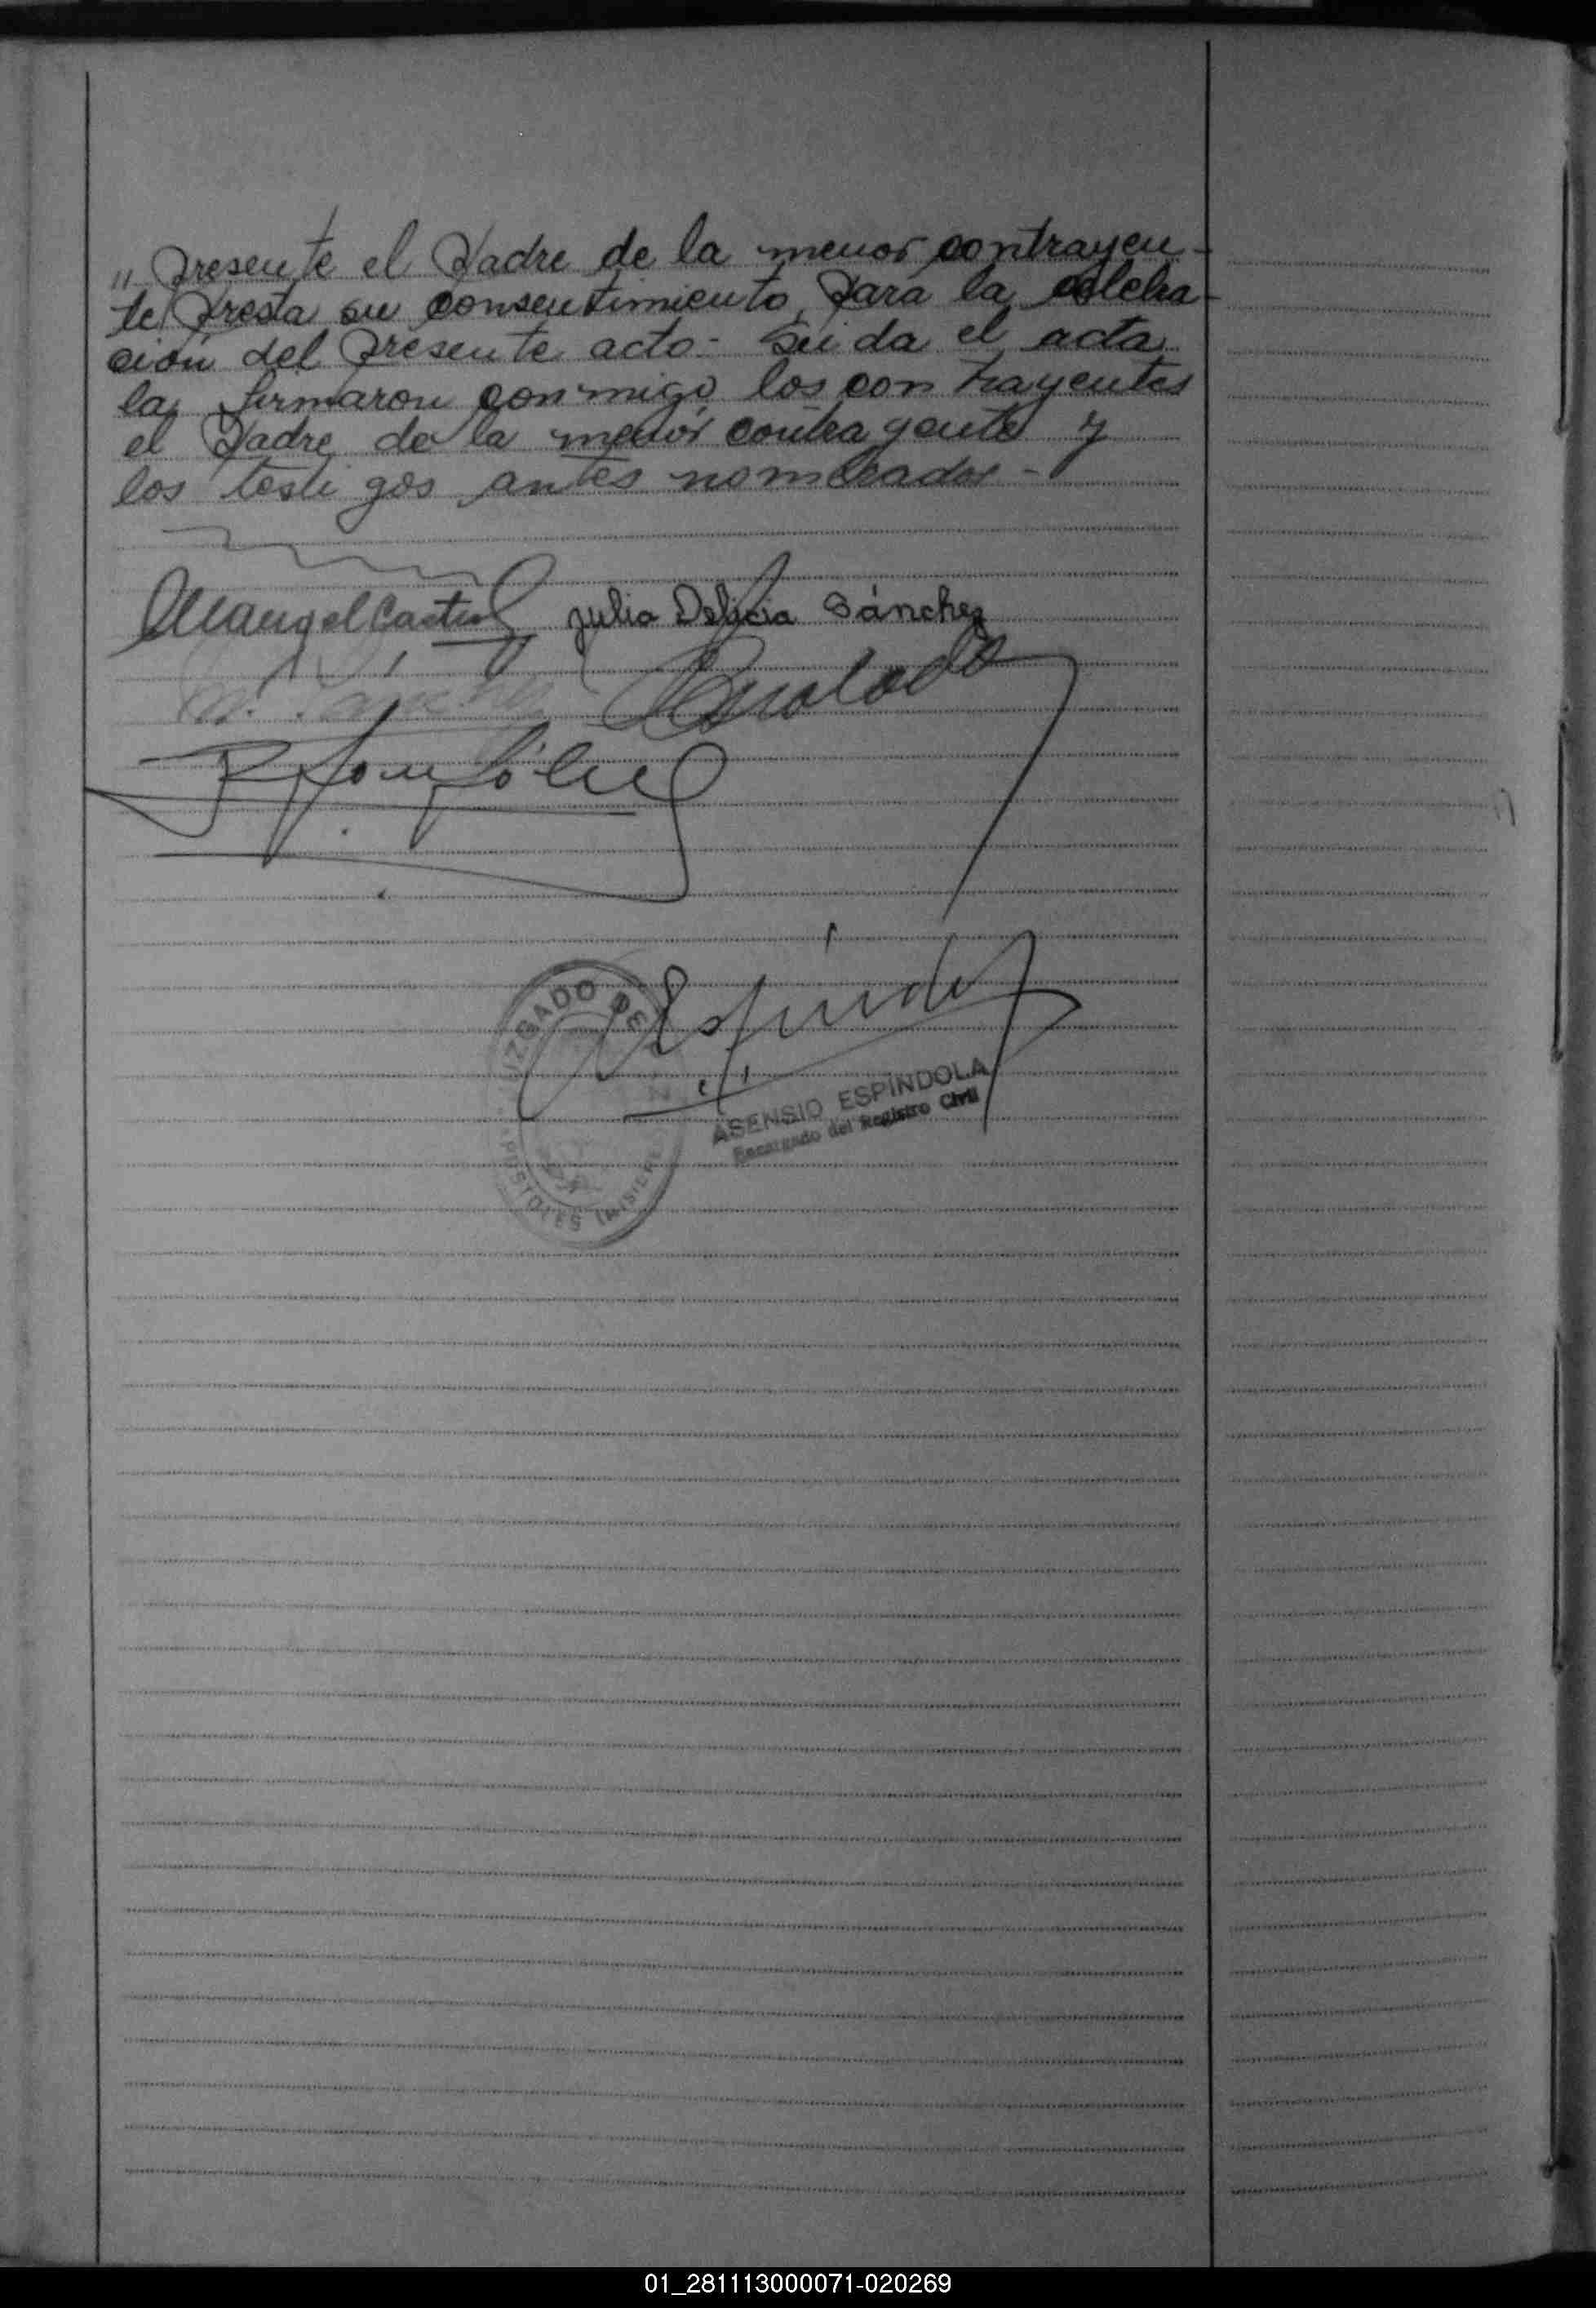 " Presente el Padre de la menor contrayen-
te, Presta su consentimiento, Para la celebra-
ción del Presente acto.- Leída el acta
la firmaron conmigo los contrayentes
el Padre de la menor contrayente y
los testigos antes nombrados -
M angel Castro Julia Delicia Sánchez
JUZGADO DE PAZ
APOSTOLES (MISIONES)
ASENSIO ESPINDOLA
Encargado del Registro Civil
01_281113000071-020269